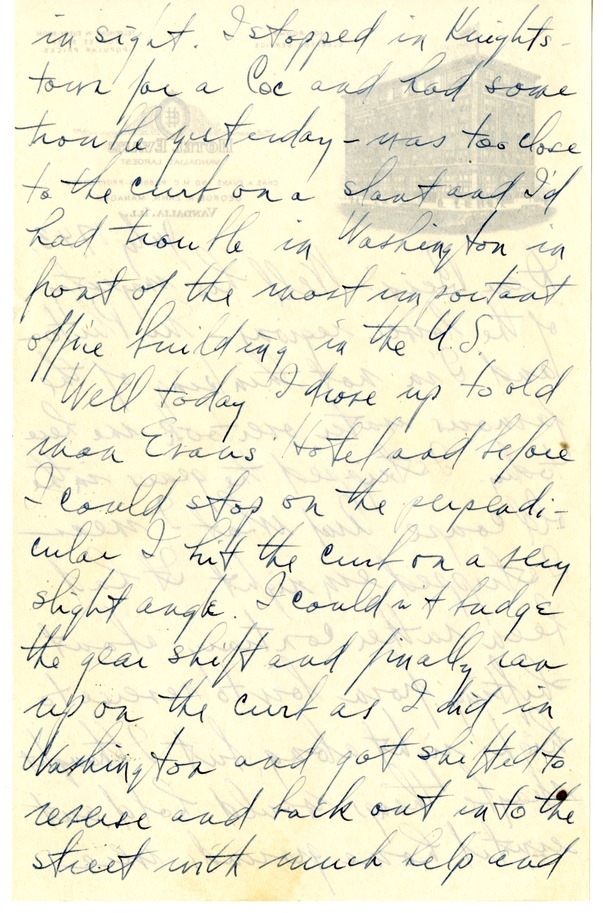 in sight. I stopped in Knights-
town for a Coc and had some
trouble yesterday - was too close
to the curb on a slant and I'd
had trouble in Washington in
front of the most important
office building in the U.S.
Well today I drove up to old
man Evans' Hotel and before
I could stop on the perpendi-
cular I hit the curb on a very
slight angle. I couldn't budge
the gear shift and finally ran
up on the curb as I did in
Washington and got shifted to
reverse and back out into the
street with much help and